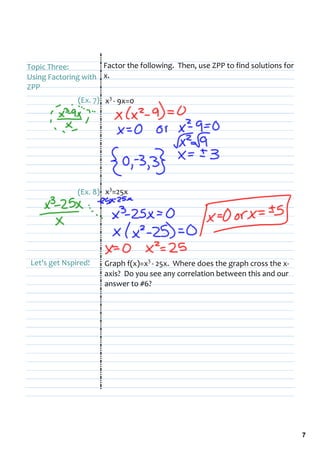 Topic Three:
Using Factoring with
ZPP
Factor the following. Then, use ZPP to find solutions for
x.
(Ex. 7) x³ - 9x=0
x³-9x
x
x(x²-9)=0
x=0 or x²-9=0
√x²=√9
x=±3
{0,-3,3}
(Ex. 8) x³=25x
-25x -25x
x³-25x
x
x³-25x=0
x(x²-25)=0
x=0 x²=25
x=0 or x=±5
Let's get Nspired!
Graph f(x)=x³ - 25x. Where does the graph cross the x-
axis? Do you see any correlation between this and our
answer to #6?
7